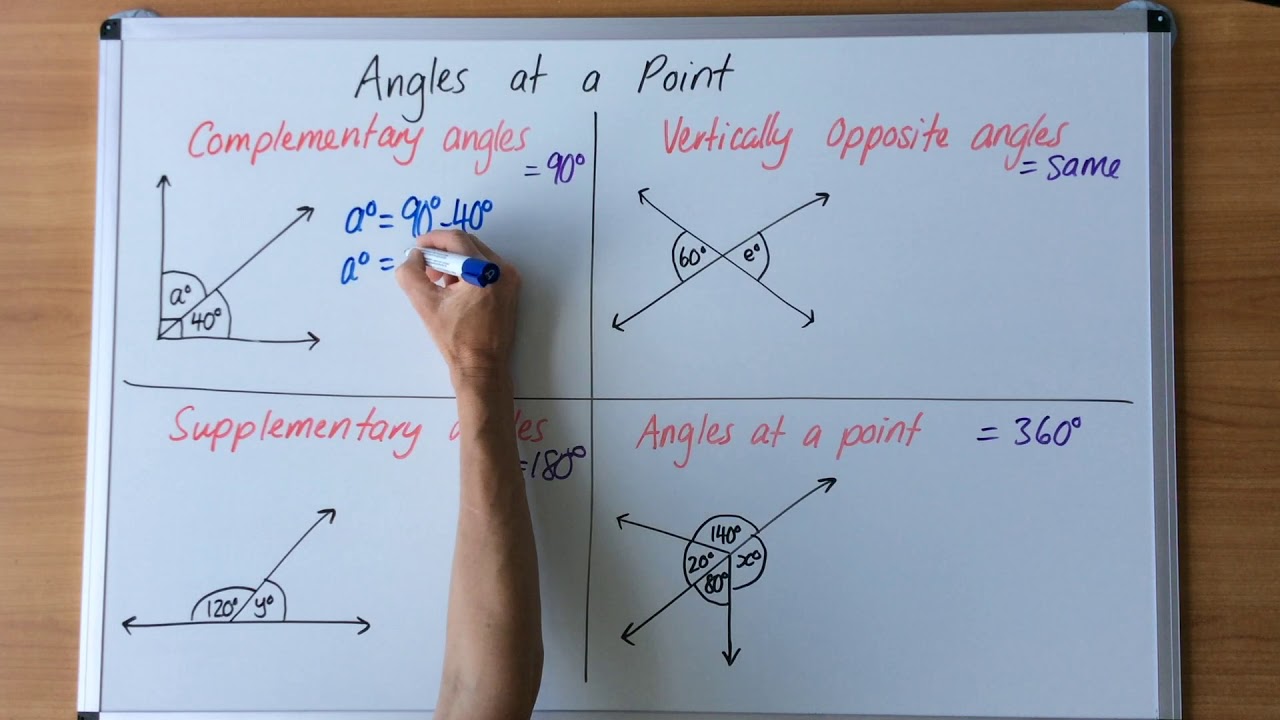 Angles at a Point
Complementary angles
= 90°
a° = 90° - 40°
a° =
a°
40°
Vertically Opposite angles
= same
60°
e°
Supplementary
=180°
120°
y°
Angles at a point = 360°
140°
20°
x°
80°